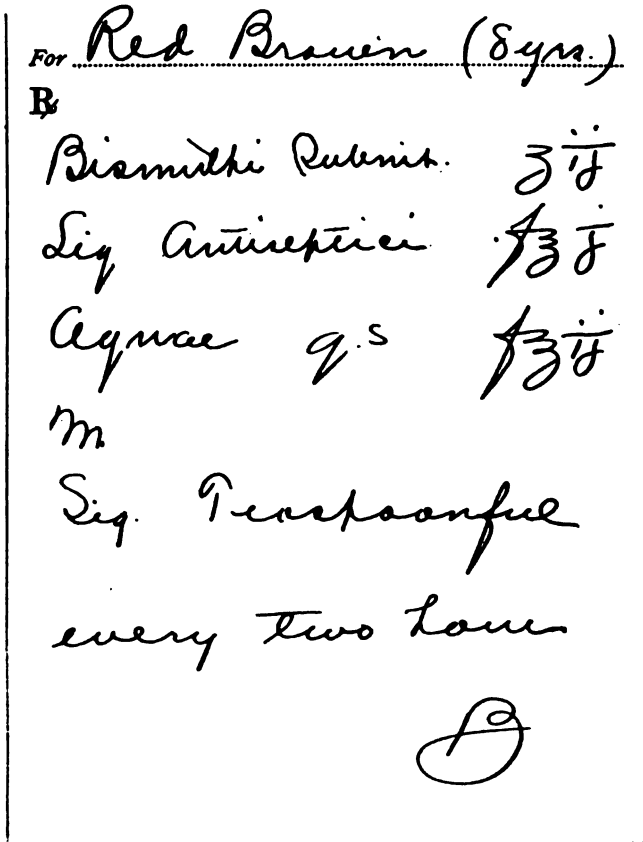 For Red Brown (8 yrs.)
℞
Bismuthi Subnit. ʒ ij
Liq Antiseptici f℥ j
Aquae q.s f℥ ij
M.
Sig. Teaspoonful
every two hours
B